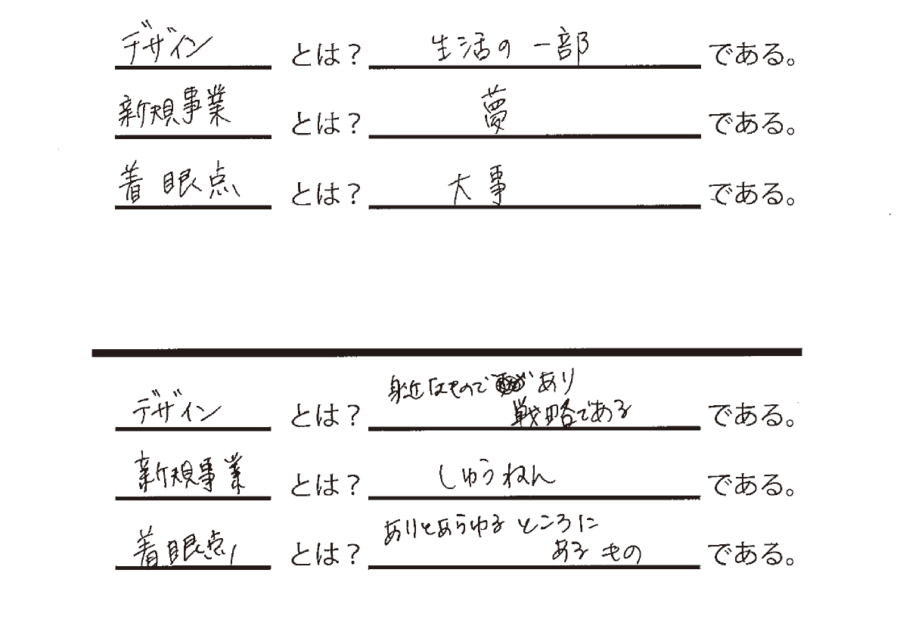 デザイン とは？ 生活の一部 である。
新規事業 とは？ 夢 である。
着眼点 とは？ 大事 である。
デザイン とは？ 身近なもので あり
戦略である である。
新規事業 とは？ しゅうねん である。
着眼点 とは？ ありとあらゆる ところに
ある もの である。